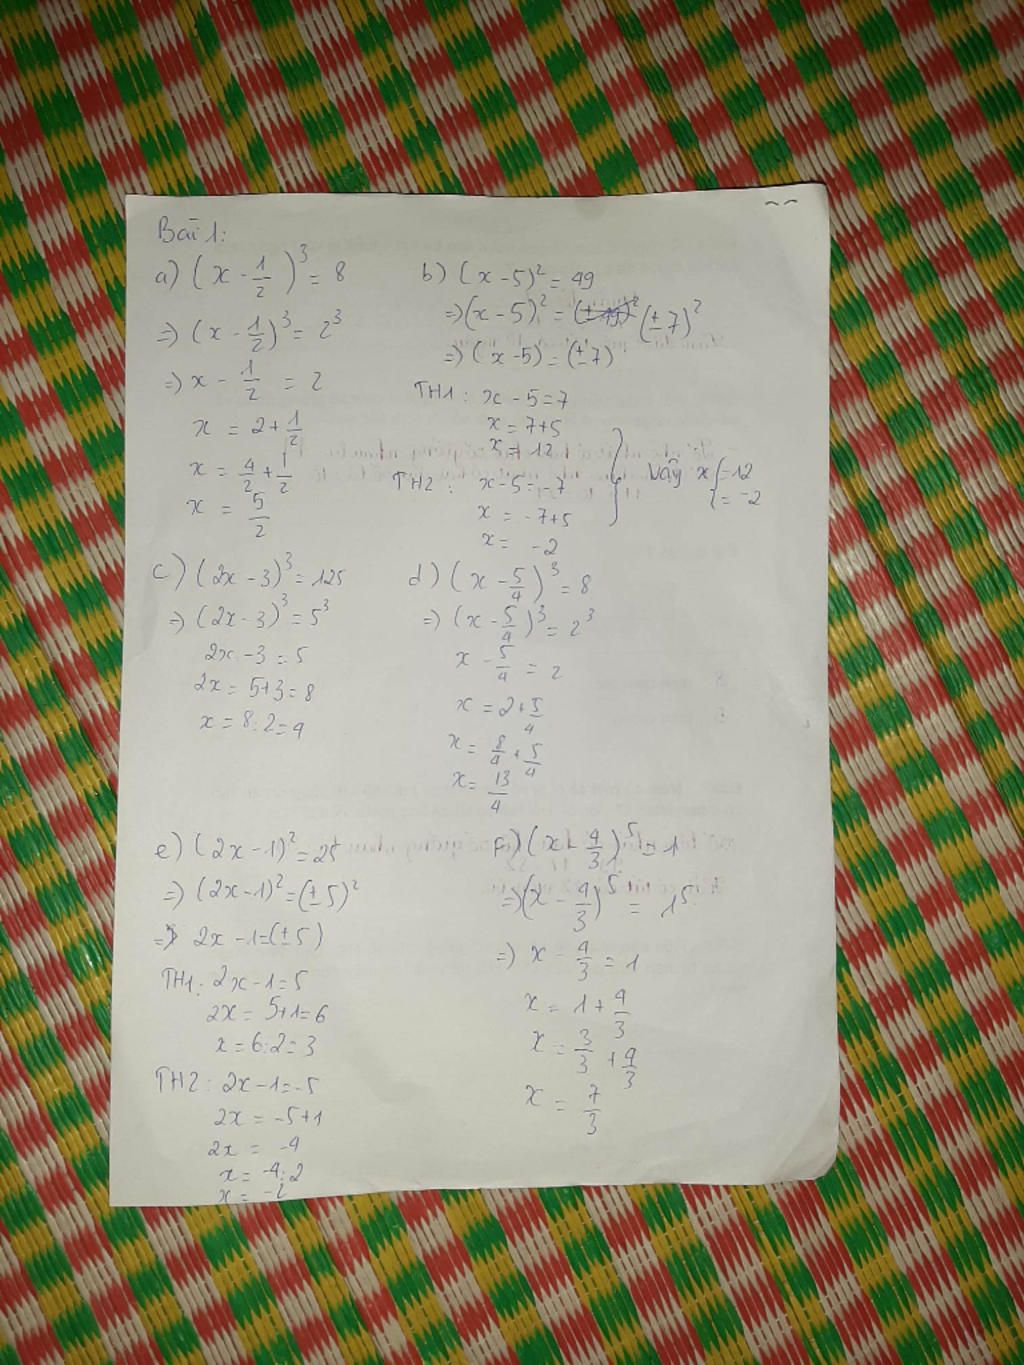 Bài 1:
a) (x - 1/2)^3 = 8
=) (x - 1/2)^3 = 2^3
=) x - 1/2 = 2
x = 2 + 1/2
x = 4/2 + 1/2
x = 5/2
b) (x - 5)^2 = 49
=) (x - 5)^2 = (± 7)^2
=) (x - 5) = (± 7)
TH1: x - 5 = 7
x = 7 + 5
x = 12
TH2: x - 5 = -7
x = -7 + 5
x = -2
Vậy x = 12
= -2
c) (2x - 3)^3 = 125
=) (2x - 3)^3 = 5^3
2x - 3 = 5
2x = 5 + 3 = 8
x = 8 : 2 = 4
d) (x - 5/4)^3 = 8
=) (x - 5/4)^3 = 2^3
x - 5/4 = 2
x = 2 + 5/4
x = 8/4 + 5/4
x = 13/4
e) (2x - 1)^2 = 25
=) (2x - 1)^2 = (± 5)^2
=) 2x - 1 = (± 5)
TH1: 2x - 1 = 5
2x = 5 + 1 = 6
x = 6 : 2 = 3
TH2: 2x - 1 = -5
2x = -5 + 1
2x = -4
x = -4 : 2
x = -2
f) (x - 4/3)^5 = 1
=) (x - 4/3)^5 = 1^5
=) x - 4/3 = 1
x = 1 + 4/3
x = 3/3 + 4/3
x = 7/3